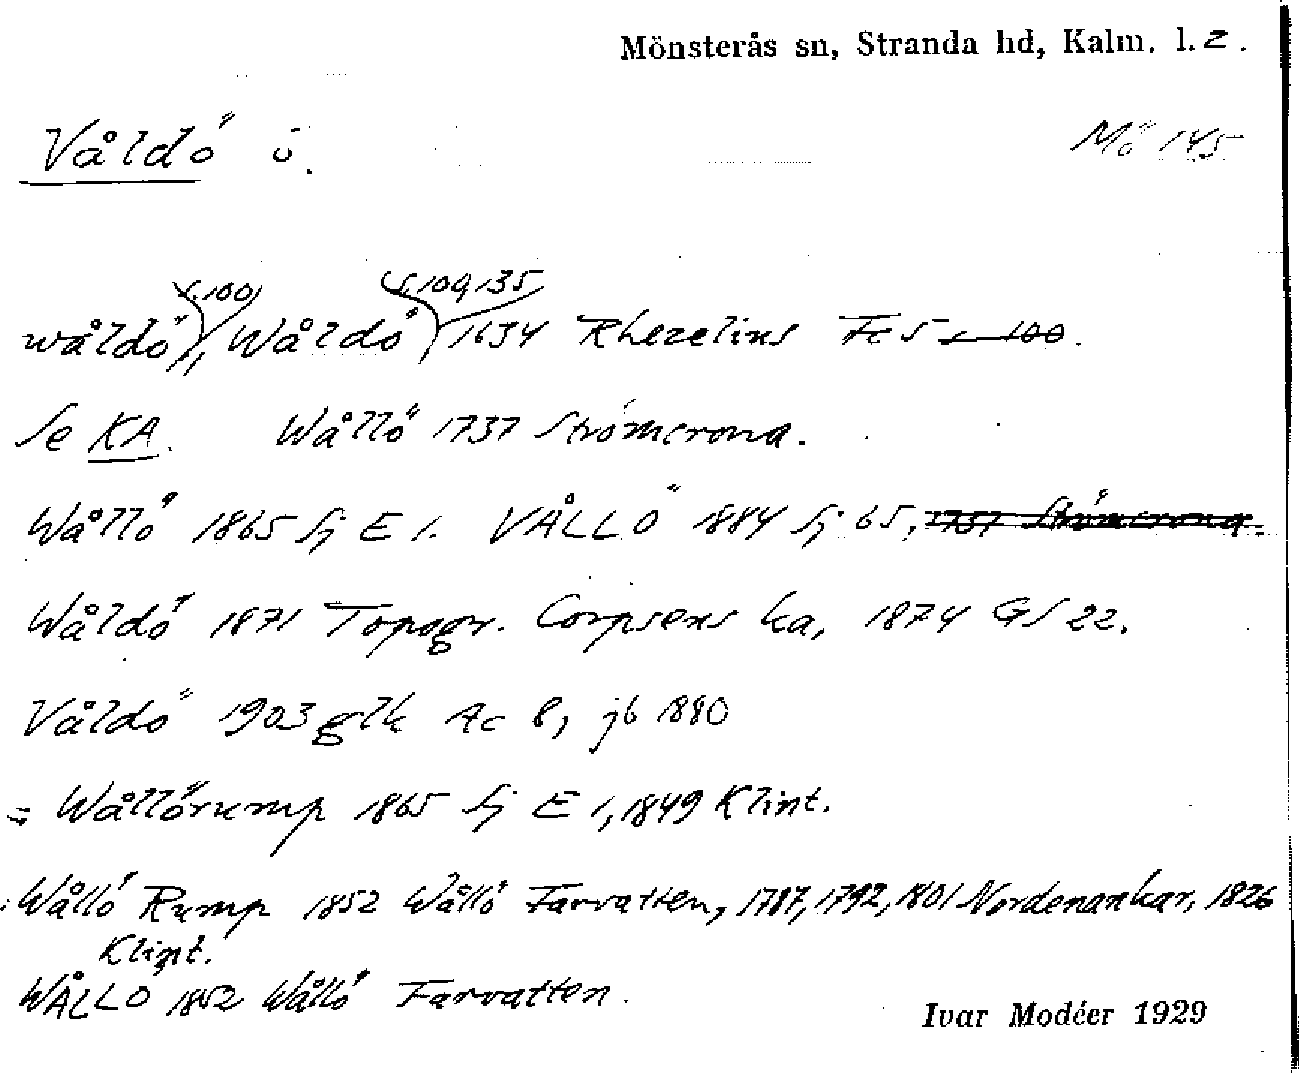 Mönsterås sn, Stranda hd, Kalm. l. 2.
Våldö ö.
Mö 145
s. 100, s. 109, 135
wåldö, Wåldö 1634 Rhezelius Fc 5 s 100.
Se KA. Wållö 1737 Strömcrona.
Wållö 1865 Sj E 1. VÅLLÖ 1884 Sj 65, 1737 Strömcrona.
Wåldö 1871 Topogr. Corpsens ka, 1874 GS 22.
Våldö 1903 glk Ac 8, jb 1880
= Wållörump 1865 Sj E 1, 1849 Klint.
Wållö Rump 1852 Wållö Farvatten, 1787, 1792, 1801 Nordenankar, 1826
Klint.
WÅLLÖ 1852 Wållö Farvatten.
Ivar Modéer 1929